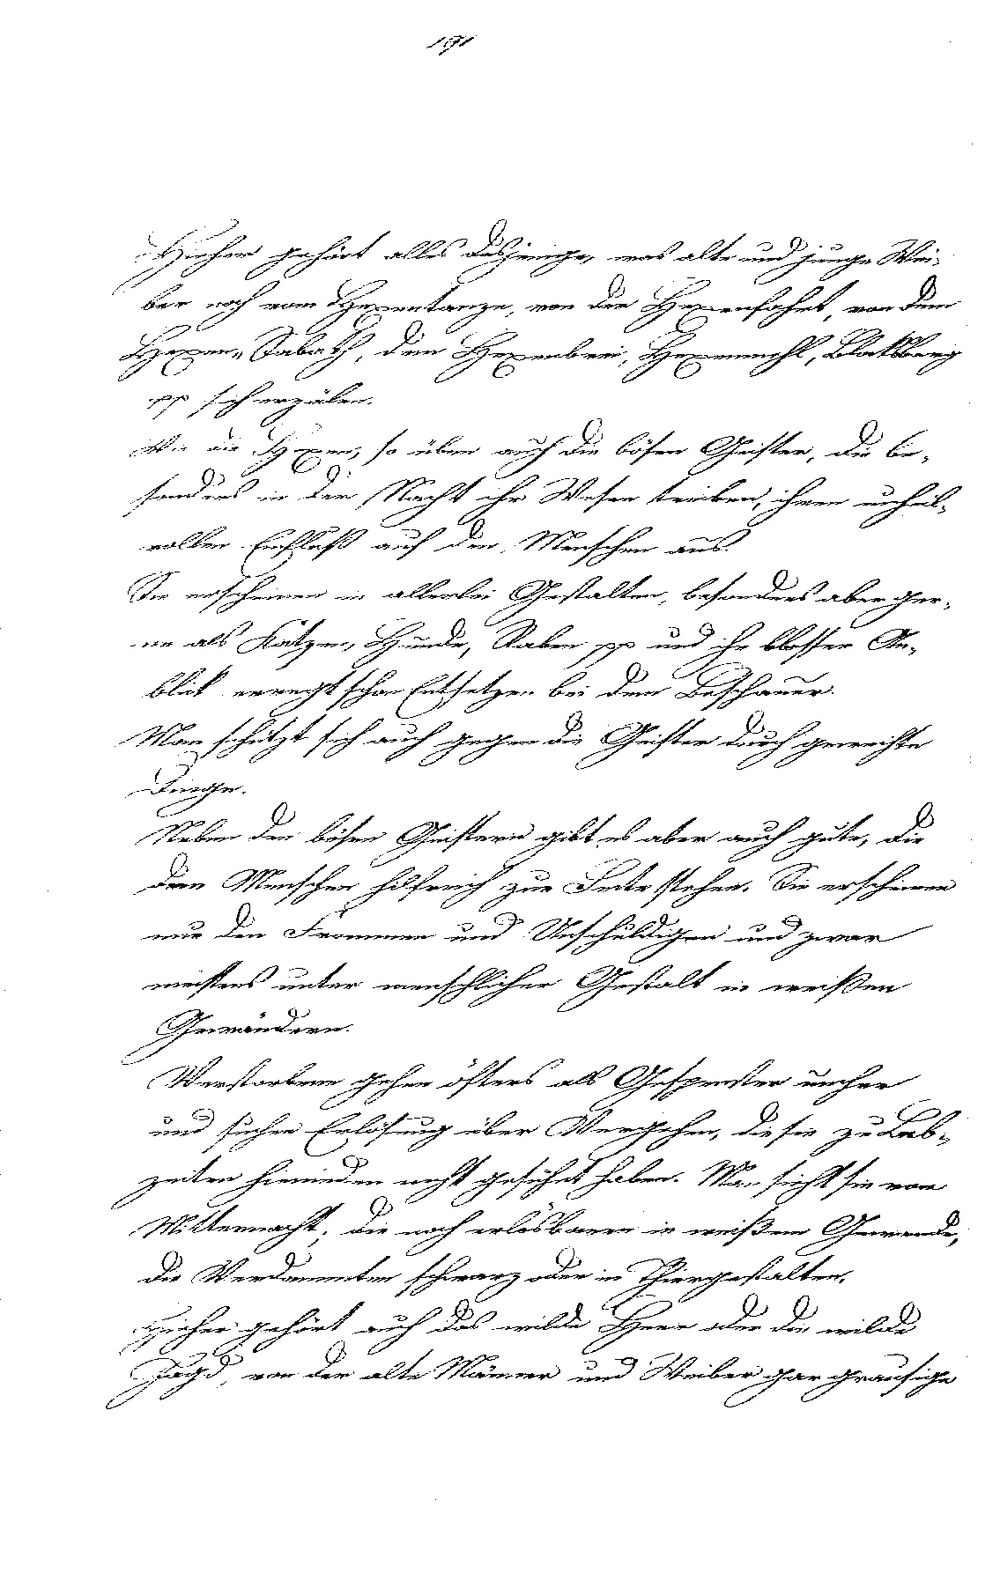 191
Hieher gehört alles dasjenige, was alte und junge Wei-
ber noch vom Hexentanze, von der Hexenfahrt, von dem
Hexen-Sabath, dem Hexenbrei, Hexenmehl, Bloksberg
pp sich erzälen.
Wie die Hexen, so üben auch die bösen Geister, die be-
sonders in der Nacht ihr Wesen treiben, ihren unheil-
vollen Einfluß auf den Menschen aus.
Sie erscheinen in allerlei Gestalten, besonders aber ger-
ne als Katzen, Hunde, Raben pp und ihr blosser An-
blick erregt schon Entsetzen bei dem Beschauer.
Man schützt sich auch gegen die Geister durch geweihte
Dinge.
Neben den bösen Geistern gibt es aber auch gute, die
dem Menschen hilfreich zur Seite stehen. Sie erscheinen
nur den Frommen und Unschuldigen und zwar
meistens unter menschlicher Gestalt in weißen
Gewändern.
Verstorbene gehen öfters als Gespenster umher
und suchen Erlösung über Vergehen, die sie zu Leb-
zeiten hienieden nicht gesühnt haben. Man sieht sie von
Mitternacht, die noch erlösbaren in weißem Gewande,
die Verdammten schwarz oder in Thiergestalten.
Hieher gehört auch das wilde Heer oder die wilde
Jagd, von der alte Männer und Weiber gar grausige